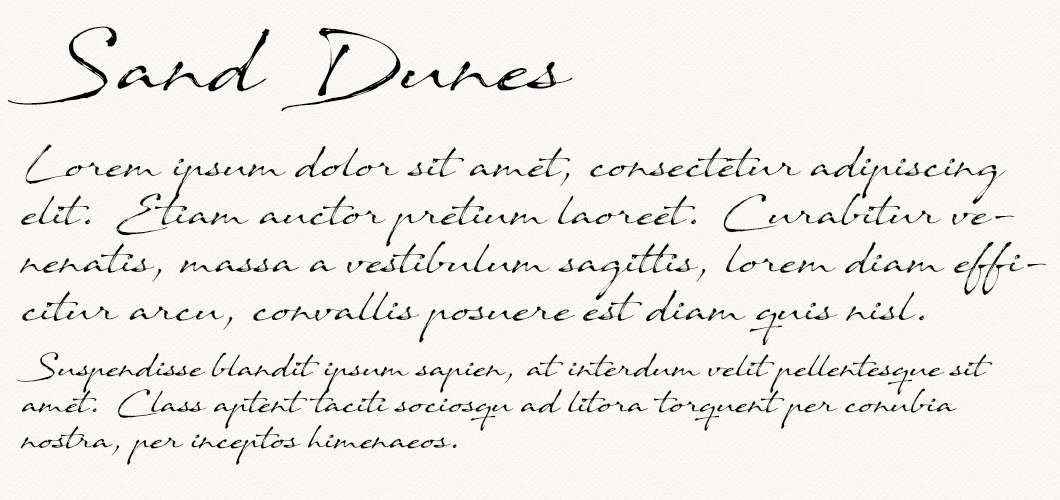 Sand Dunes
Lorem ipsum dolor sit amet, consectetur adipiscing
elit. Etiam auctor pretium laoreet. Curabitur ve-
nenatis, massa a vestibulum sagittis, lorem diam effi-
citur arcu, convallis posuere est diam quis nisl.
Suspendisse blandit ipsum sapien, at interdum velit pellentesque sit
amet. Class aptent taciti sociosqu ad litora torquent per conubia
nostra, per inceptos himenaeos.